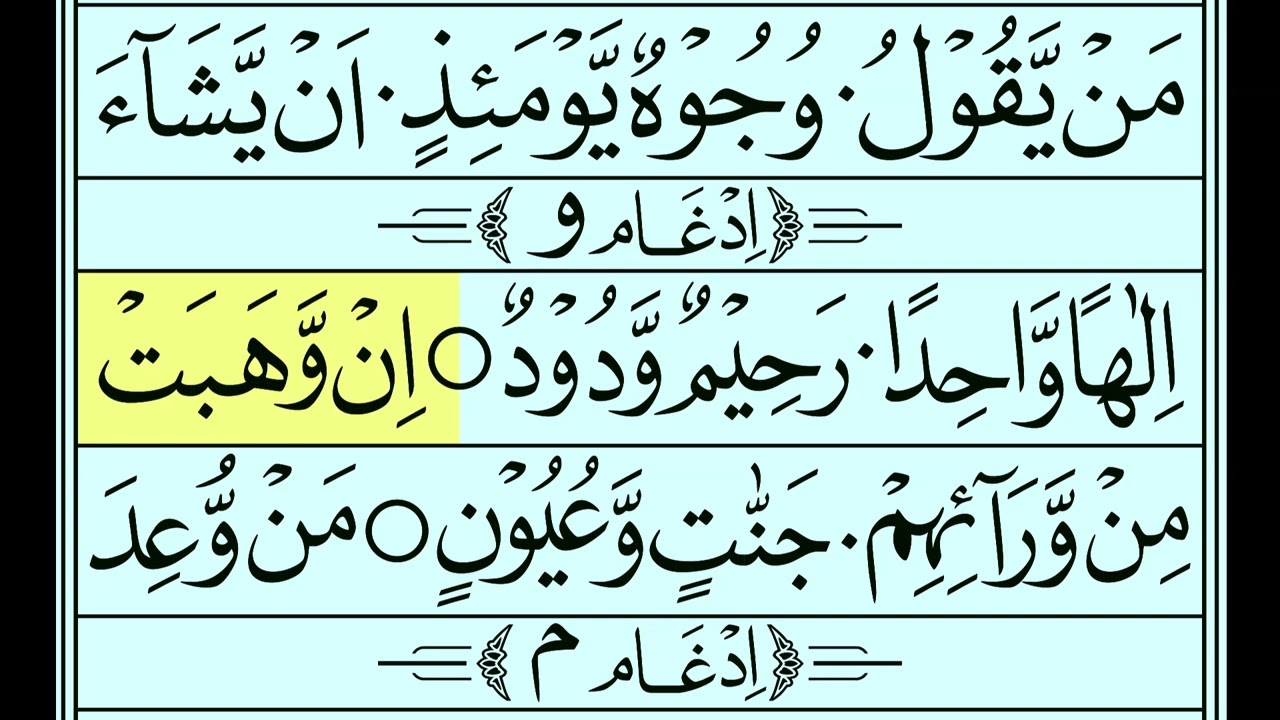 مَنْ يَّقُوْلُ۰ وُجُوْهٌ يَّوْمَئِذٍ۰ اَنْ يَّشَآءَ
اِدْغَام و
اِلٰهًا وَّاحِدًا۰ رَحِيْمٌ وَّدُوْدٌ ○ اِنْ وَّهَبَتْ
مِنْ وَّرَآئِهِمْ۰ جَنّٰتٍ وَّعُيُوْنٍ ○ مَنْ وُّعِدَ
اِدْغَام م